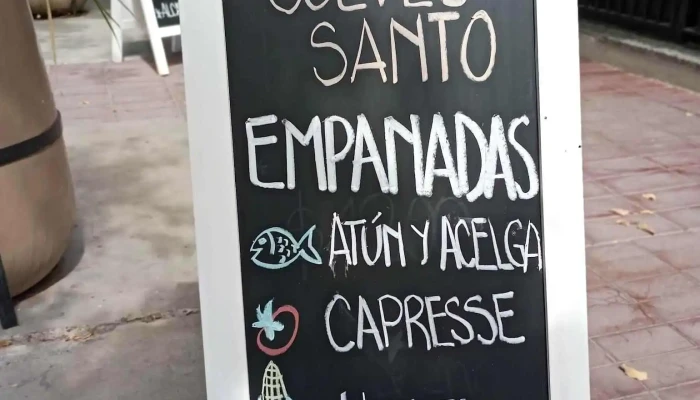 JUEVES
SANTO
EMPANADAS
ATÚN Y ACELGA
CAPRESSE